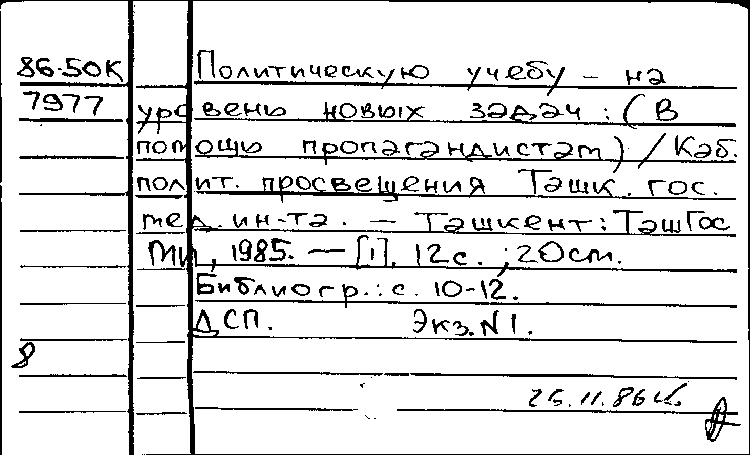 86-50К Политическую учебу - на
7977 уровень новых задач: (В
помощь пропагандистам) / Каб.
полит. просвещения Ташк. гос.
мед. ин-та. - Ташкент: ТашГос
МИ, 1985. - [1], 12с.; 20см.
Библиогр.: с. 10-12.
ДСП. Экз. N1.
8
25.11.86